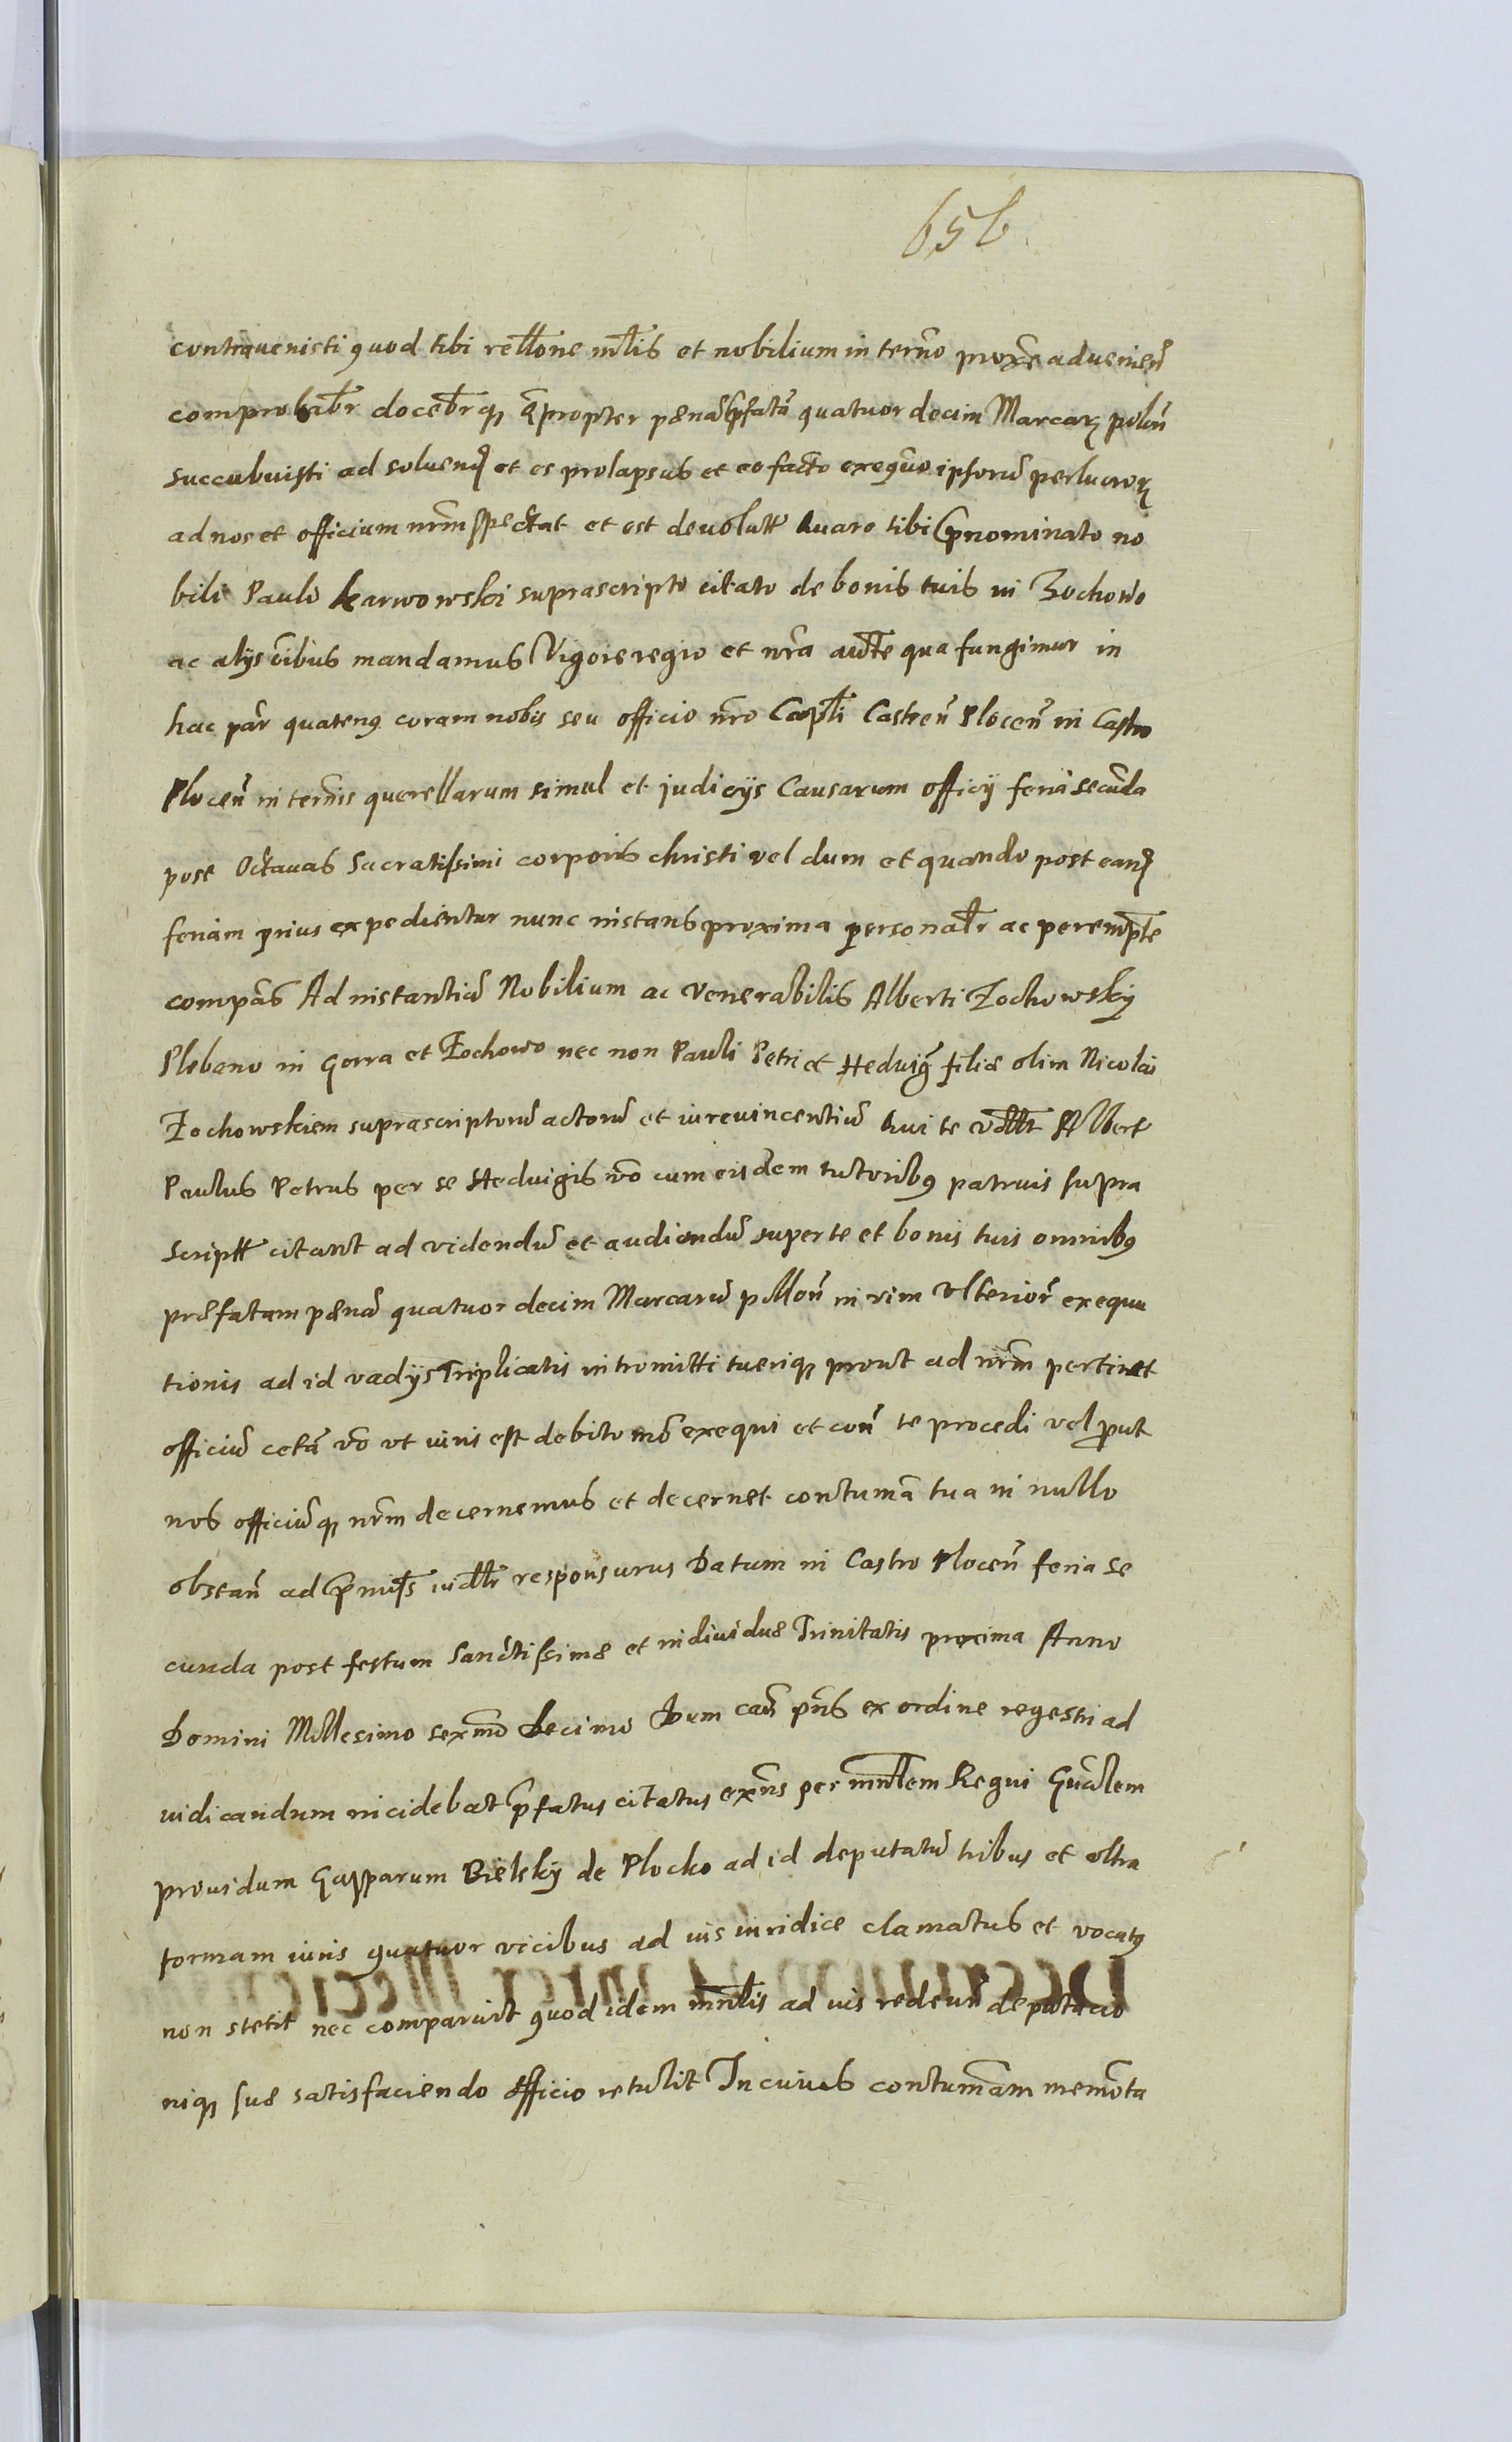 656
contravenisti quod tibi rellone mlis et nobilium in termo proxe advenien
comprobabr docebrq qpropter pænã pfatã quatuor decim Marcar polon
succubuisti ad solvend et es prolapsus et eo facto exequo ipsorũ perlucror
ad nos et officium nrm spectat et est devolutt Quare tibi pnominato no
bili Paulo Karwowski suprascripto citato de bonis tuis in Zochowo
ac alijs oibus mandamus Vigore regio et nra autte qua fungimur in
hac par quatenus coram nobis seu officio nro Capli Castren Plocen in Castro
Plocen in termis querellarum simul et judicijs Causarum officij feria secũda
post Octavas Sacratissimi corporis christi vel dum et quando post eand
feriam prius expedientur nunc instans proxima personalr ac perempte
compas Ad instantiã Nobilium ac Venerabilis Alberti Zochowsky
Plebano in Gorra et Zochowo nec non Pauli Petri et Hedvig filiæ olim Nicolai
Zochowskiem suprascriptorũ actorũ et iurevincentiũ Qui te vdllt Albert
Paulus Petrus per se Hedvigis vo cum eisdem tutoribus patruis supra
scriptt citant ad videndũ et audiendũ super te et bonis tuis omnibus
præfatam pænã quatuor decim Marcarũ pollon in vim Ulterior exequu
tionis ad id vadijs Triplicatis intromitti tueriq prout ad nrm pertinet
officiũ cetã vo ut iuris est debito mo exequi et con te procedi vel prout
nos officiũq nrm decernemus et decernet contumã tua in nullo
obstan ad pmiss iudllr responsurus Datum in Castro Plocen feria se
cunda post festum Sanctissimæ et individuæ Trinitatis proxima Anno
Domini Millesimo sexmo Decimo Dum cau pns ex ordine regestri ad
iudicandum incidebat pfatus citatus exns per mnlem Regni Gnalem
providum Gasparum Bielsky de Plocko ad id deputatũ tribus et ultra
formam iuris quatuor vicibus ad ius iuridice clamatus et vocatus
non stetit nec comparuit quod idem mnlis ad ius redeun deputacio
niq suæ satisfaciendo officio retulit In cuius contumam memota